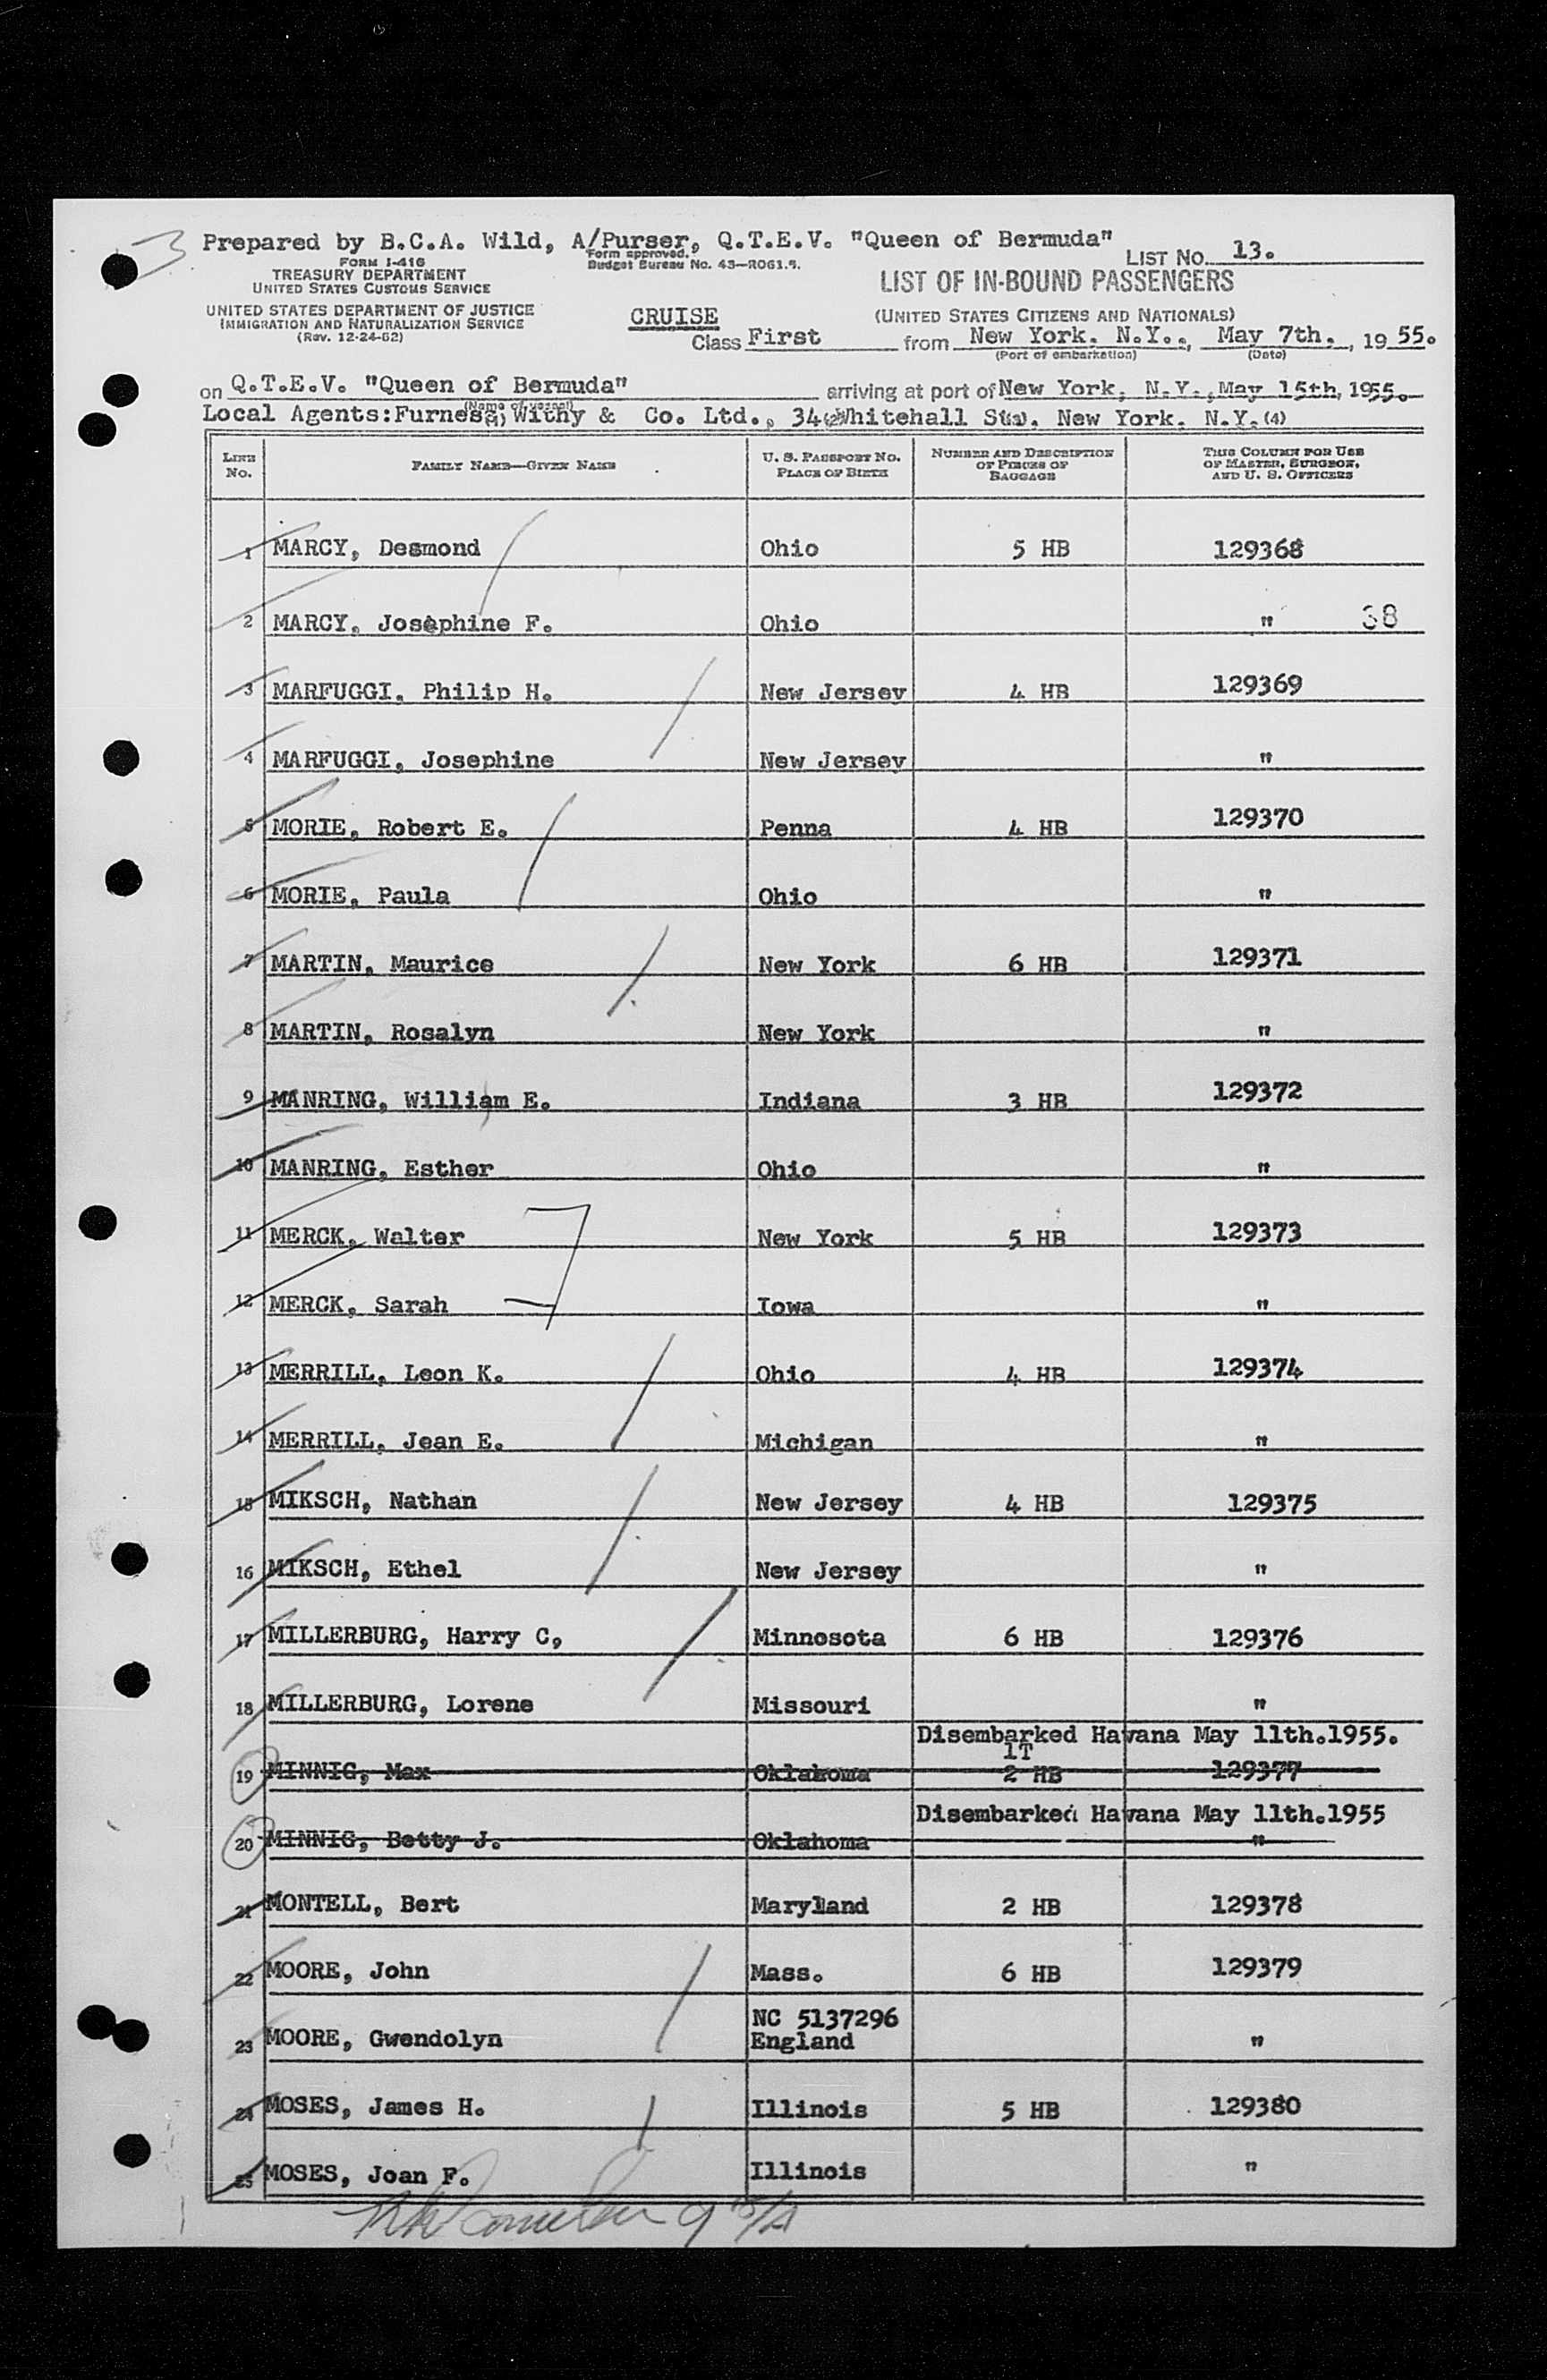 3
Prepared by B.C.A. Wild, A/Purser, Q.T.E.V. "Queen of Bermuda"
LIST NO. 13.
FORM I-416
TREASURY DEPARTMENT
UNITED STATES CUSTOMS SERVICE
Form approved.
Budget Bureau No. 43—R061.
LIST OF IN-BOUND PASSENGERS
UNITED STATES DEPARTMENT OF JUSTICE
IMMIGRATION AND NATURALIZATION SERVICE
(Rev. 12-24-52)
CRUISE
(UNITED STATES CITIZENS AND NATIONALS)
Class First from New York. N.Y., May 7th. , 19 55.
(Port of embarkation) (Date)
on Q.T.E.V. "Queen of Bermuda" arriving at port of New York, N.Y., May 15th, 1955.
(Name of vessel)
Local Agents:Furness, Withy & Co. Ltd., 34 Whitehall St. New York. N.Y. (4)
LINE No. FAMILY NAME—GIVEN NAME U. S. PASSPORT NO. PLACE OF BIRTH NUMBER AND DESCRIPTION OF PIECES OF BAGGAGE THIS COLUMN FOR USE OF MASTER, SURGEON, AND U. S. OFFICERS
1 MARCY, Desmond Ohio 5 HB 129368
2 MARCY, Josephine F. Ohio " 38
3 MARFUGGI, Philip H. New Jersey 4 HB 129369
4 MARFUGGI, Josephine New Jersey "
5 MORIE, Robert E. Penna 4 HB 129370
6 MORIE, Paula Ohio "
7 MARTIN, Maurice New York 6 HB 129371
8 MARTIN, Rosalyn New York "
9 MANRING, William E. Indiana 3 HB 129372
10 MANRING, Esther Ohio "
11 MERCK, Walter New York 5 HB 129373
12 MERCK, Sarah Iowa "
13 MERRILL, Leon K. Ohio 4 HB 129374
14 MERRILL, Jean E. Michigan "
15 MIKSCH, Nathan New Jersey 4 HB 129375
16 MIKSCH, Ethel New Jersey "
17 MILLERBURG, Harry C, Minnesota 6 HB 129376
18 MILLERBURG, Lorene Missouri "
Disembarked Havana May 11th.1955.
1T
19 MINNIG, Max Oklahoma 2 HB 129377
Disembarked Havana May 11th.1955
20 MINNIG, Betty J. Oklahoma "
21 MONTELL, Bert Maryland 2 HB 129378
22 MOORE, John Mass. 6 HB 129379
NC 5137296
23 MOORE, Gwendolyn England "
24 MOSES, James H. Illinois 5 HB 129380
25 MOSES, Joan F. Illinois "